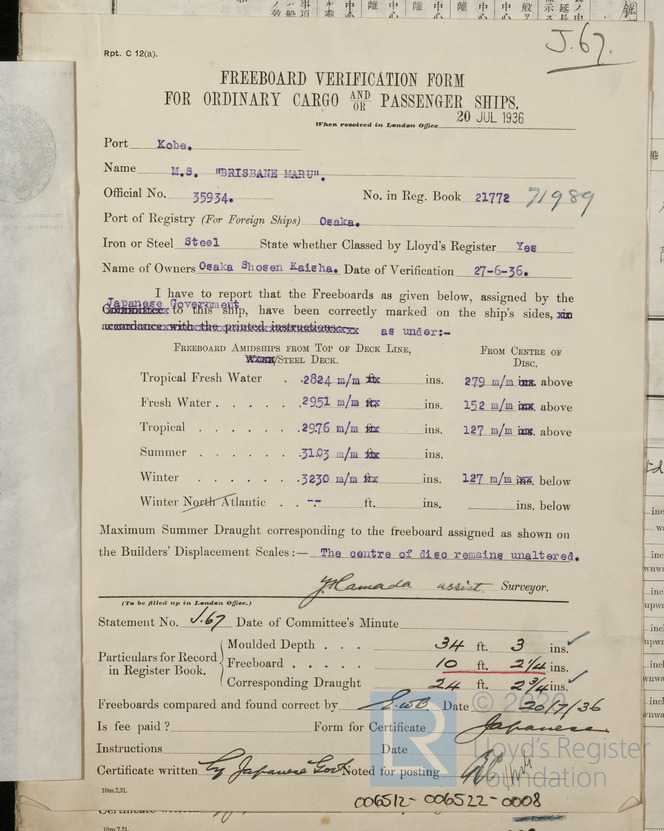 J.67.
Rpt. C 12(a).
FREEBOARD VERIFICATION FORM
FOR ORDINARY CARGO AND/OR PASSENGER SHIPS.
When received in London Office 20 JUL 1936
Port Kobe.
Name M.S. "BRISBANE MARU".
Official No. 35934. No. in Reg. Book 21772 71989
Port of Registry (For Foreign Ships) Osaka.
Iron or Steel Steel State whether Classed by Lloyd's Register Yes
Name of Owners Osaka Shosen Kaisha. Date of Verification 27-6-36.
I have to report that the Freeboards as given below, assigned by the
Japanese Government
Committee to this ship, have been correctly marked on the ship's sides, in
accordance with the printed instructions as under:-
FREEBOARD AMIDSHIPS FROM TOP OF DECK LINE, FROM CENTRE OF
/STEEL DECK. DISC.
Tropical Fresh Water . . 2824 m/m ft. ins. 279 m/m ins. above
Fresh Water . . . . . . 2951 m/m ft. ins. 152 m/m ins. above
Tropical . . . . . . 2976 m/m ft. ins. 127 m/m ins. above
Summer . . . . . . 3103 m/m ft. ins.
Winter . . . . . . 3230 m/m ft. ins. 127 m/m ins. below
Winter North Atlantic . . -.- ft. ins. ins. below
Maximum Summer Draught corresponding to the freeboard assigned as shown on
the Builders' Displacement Scales:— The centre of disc remains unaltered.
Y. Hamada assist. Surveyor.
(To be filled up in London Office.)
Statement No. J.67 Date of Committee's Minute
Particulars for Record in Register Book.
Moulded Depth . . . 34 ft. 3 ins.
Freeboard . . . . . 10 ft. 2 1/4 ins.
Corresponding Draught 24 ft. 2 3/4 ins.
Freeboards compared and found correct by Date 20/7/36
Is fee paid? Form for Certificate Japanese
Instructions Date
Certificate written by Japanese Govt Noted for posting
10m.7,31.
006512-006522-0008
© 2020
LR
Lloyd's Register
Foundation
10m.7,31.